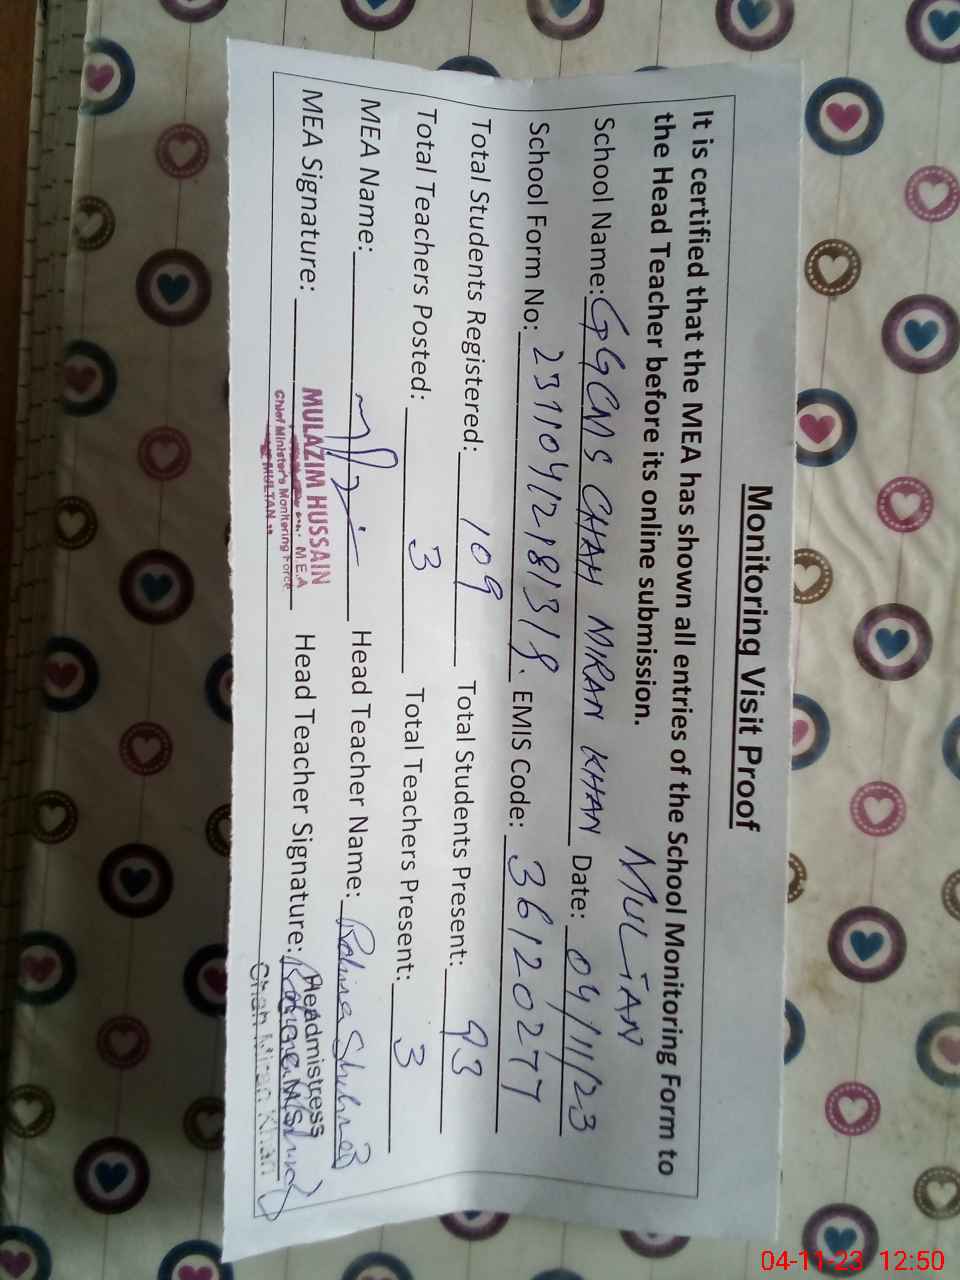 Monitoring Visit Proof
It is certified that the MEA has shown all entries of the School Monitoring Form to
the Head Teacher before its online submission.
MULTAN
School Name: GGCMS CHAH MIRAN KHAN Date: 04/11/23
School Form No: 23110412181318. EMIS Code: 36120277
Total Students Registered: 109 Total Students Present: 93
Total Teachers Posted: 3 Total Teachers Present: 3
MEA Name: Head Teacher Name:
MEA Signature: Head Teacher Signature:
MULAZIM HUSSAIN
M.E.A
Chief Minister's Monitoring Force
MULTAN
Headmistress
Chah Miran Khan
04-11-23 12:50